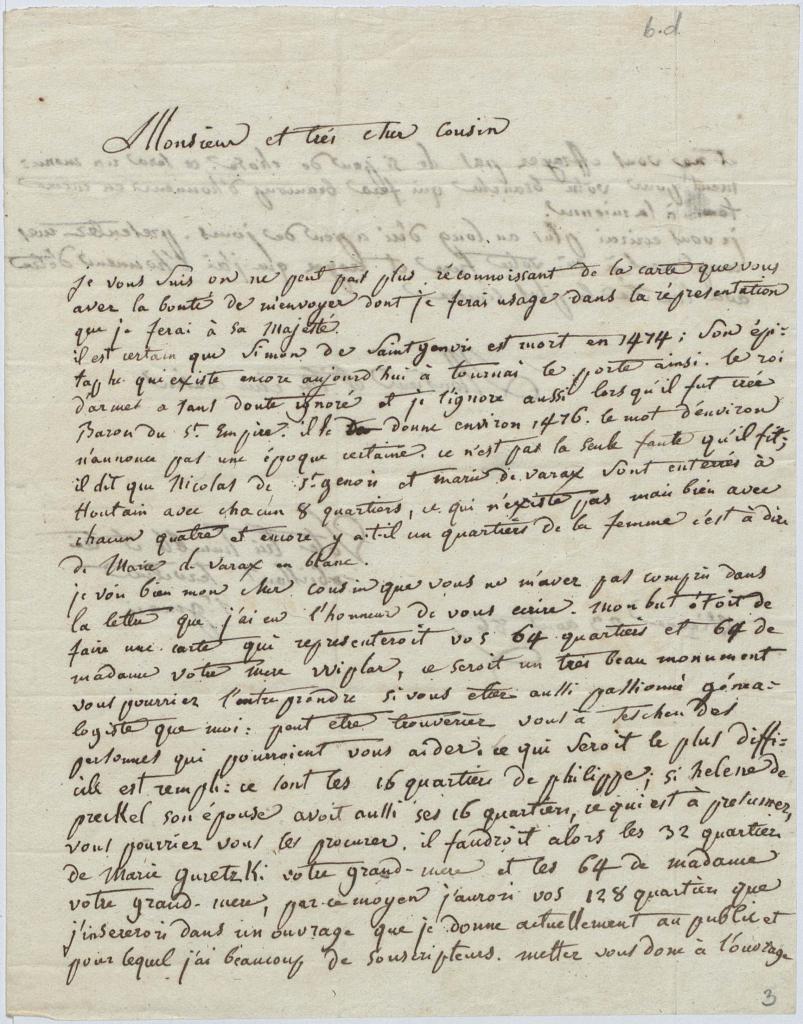 b.d
Monsieur et très cher cousin
je vous suis on ne peut pas plus réconnoissant de la carte que vous
avez la bonté de m'envoyer dont je ferai usage dans la réprésentation
que je ferai à Sa Majesté.
il est certain que Simon de Saintgenois est mort en 1474; son épi-
taphe qui existe encore aujourd'hui à tournai le porte ainsi. le roi
d'armes a sans doute ignoré et je l'ignore aussi lorsqu'il fut créé
Baron du St. Empire. il le donne environ 1476. le mot d'environ
n'annonce pas une époque certaine. ce n'est pas la seule faute qu'il fit;
il dit que Nicolas de St. genois et marie de varax sont enterrés à
Houtain avec chacun 8 quartiers, ce qui n'existe pas mais bien avec
chacun quatre et encore y a-t-il un quartiers de la femme c'est à dire
de Marie de varax en blanc.
je vois bien mon cher cousin que vous ne m'avez pas compris dans
la lettre que j'ai eu l'honneur de vous écrire. mon but étoit de
faire une carte qui representeroit vos 64 quartiers et 64 de
madame votre mere, ce seroit un très beau monument
vous pourriez l'entreprendre si vous etiez aussi passionné généa-
logiste que moi: peut etre trouveriez vous à Teschen des
personnes qui pourroient vous aider. ce qui seroit le plus diffi-
cile est rempli: ce sont les 16 quartiers de philippe; si helene de
preckel son épouse avoit aussi ses 16 quartiers, ce qui est à presumer,
vous pourriez vous les procurer. il faudroit alors les 32 quartiers
de Marie guretzki votre grand-mere et les 64 de madame
votre grand-mere, par ce moyen j'aurois vos 128 quartiers que
j'insererois dans un ouvrage que je donne actuellement au public et
pour lequel j'ai beaucoup de souscripteurs. mettez vous donc à l'ouvrage
3